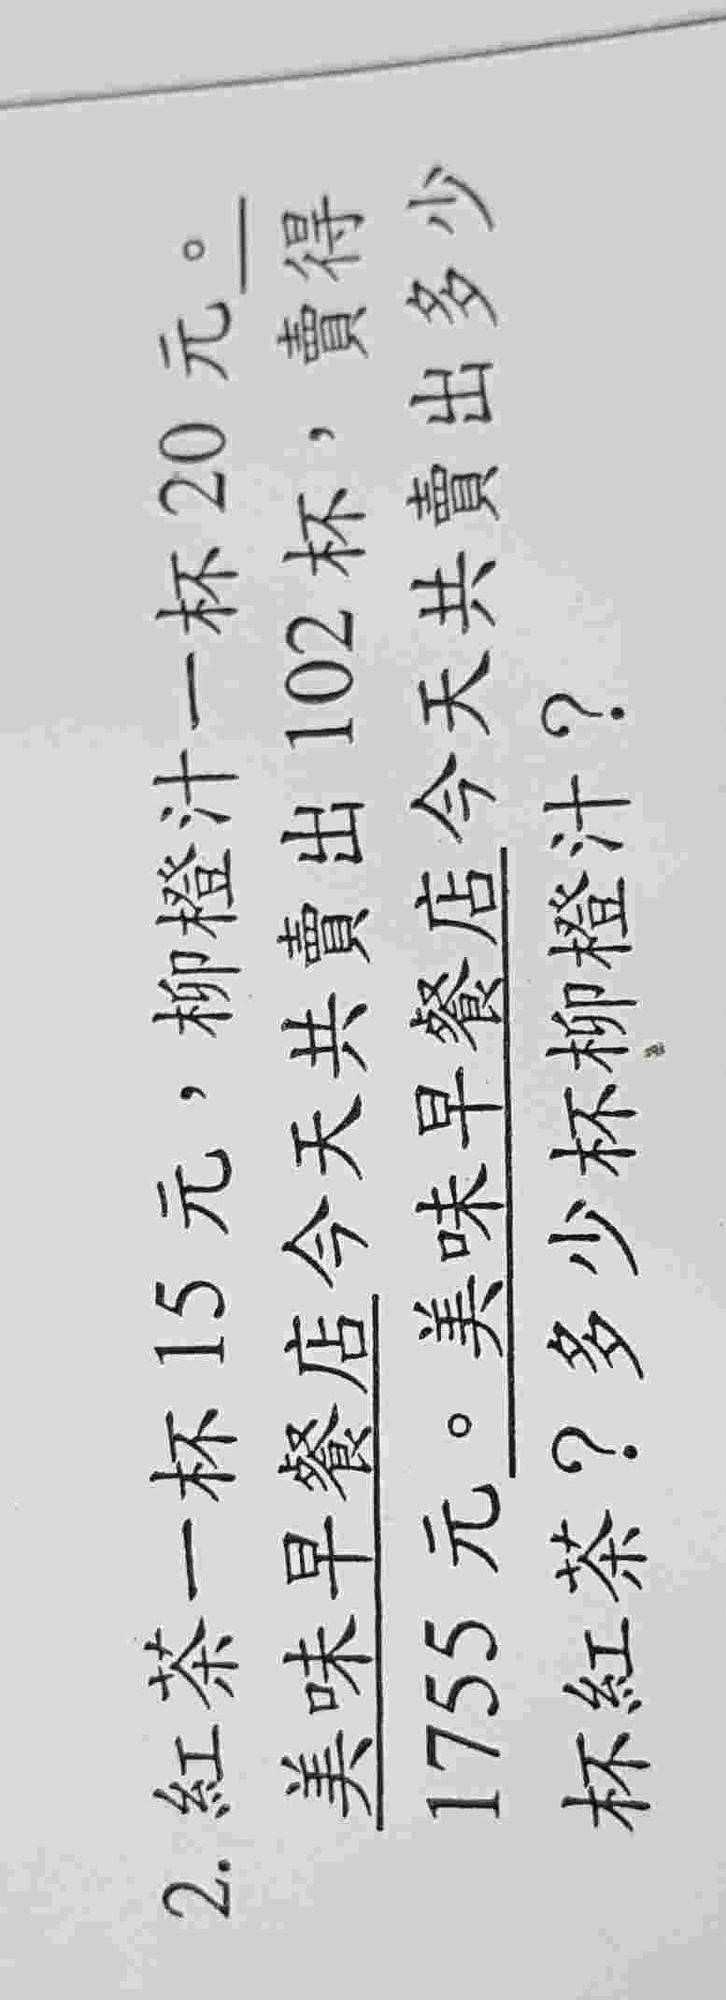 2. 紅茶一杯 15 元，柳橙汁一杯 20 元。
美味早餐店今天共賣出 102 杯，賣得
1755 元。美味早餐店今天共賣出多少
杯紅茶？多少杯柳橙汁？